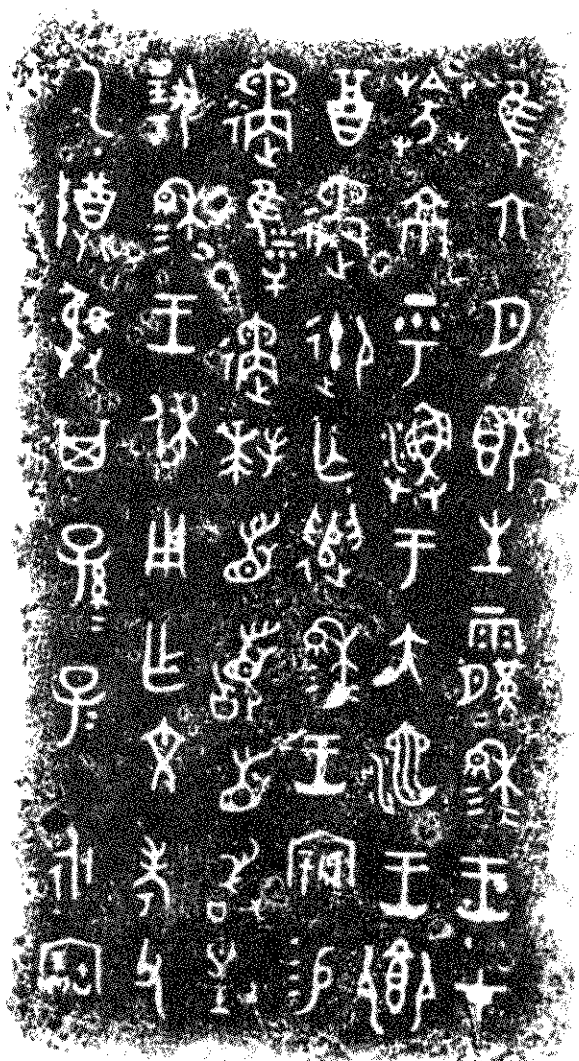 隹六月既生霸穆=王才
𦮘京乎漁于大池王鄉
酉遹御亡遣穆=王親易
遹遹拜首𩒨首敢對
揚穆=王休用乍文考父
乙尊彝其孫=子=永寶